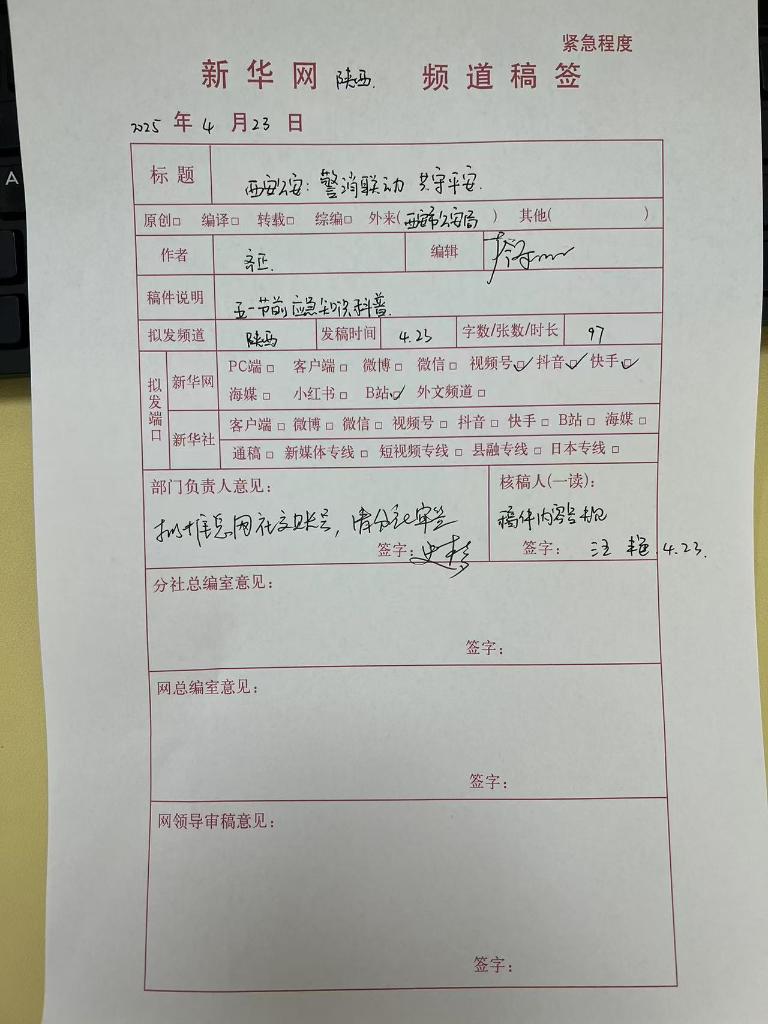 紧急程度
新华网 陕西 频道稿签
2025 年 4 月 23 日
标题 西安公安：警消联动 共守平安.
原创□ 编译□ 转载□ 综编□ 外来(西安市公安局) 其他( )
作者 编辑
稿件说明 五一节前应急知识科普.
拟发频道 陕西 发稿时间 4.23 字数/张数/时长 97
拟发端口
新华网 PC端□ 客户端□ 微博□ 微信□ 视频号☑ 抖音☑ 快手☑
海媒□ 小红书□ B站☑ 外文频道□
新华社 客户端□ 微博□ 微信□ 视频号□ 抖音□ 快手□ B站□ 海媒□
通稿□ 新媒体专线□ 短视频专线□ 县融专线□ 日本专线□
部门负责人意见： 核稿人(一读)：
拟推总网社交账号，请分社审签 稿件内容合规
签字： 签字： 汪艳 4.23.
分社总编室意见：
签字：
网总编室意见：
签字：
网领导审稿意见：
签字：
A